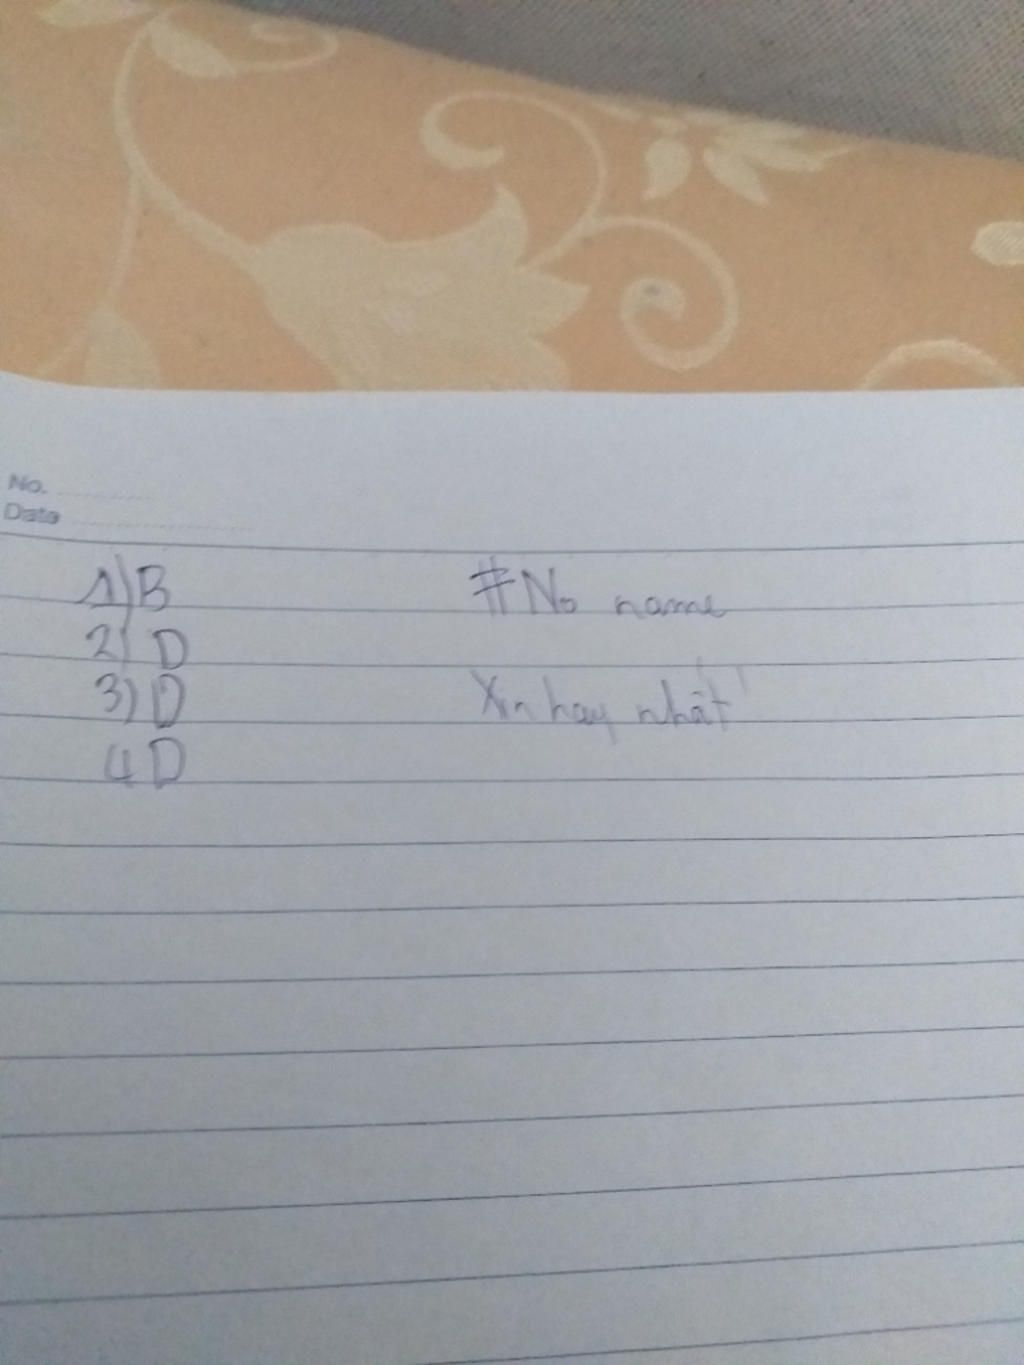 No.
Date
1) B #No name
2) D
3) D Xin hay nhất
4 D